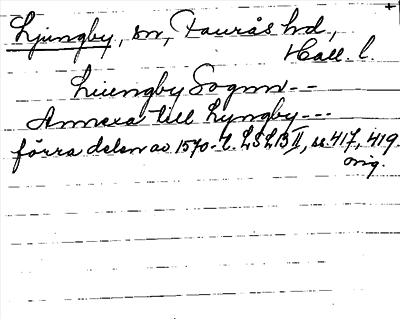 Ljungby, sn, Faurås hd,
Hall. l.
Liungby Sogn --
Annexa till Lyngby ---
förra delen av 1570-t. LSLB II, s. 417, 419.
orig.